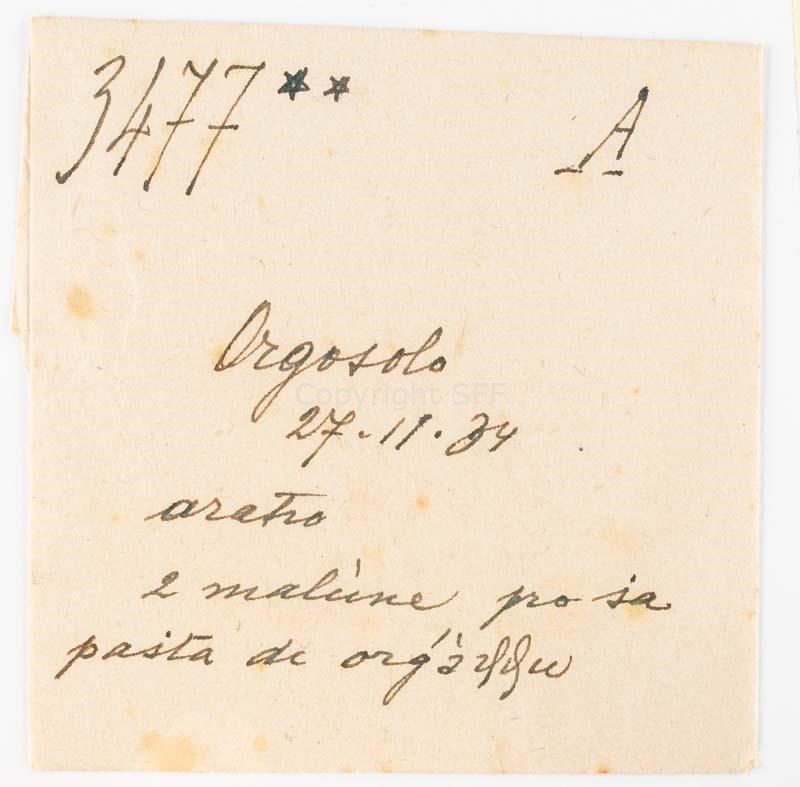 3477 ** A
Orgosolo
Copyright SFF
27.11.34
aratro
2 malúne pro sa
pasta de